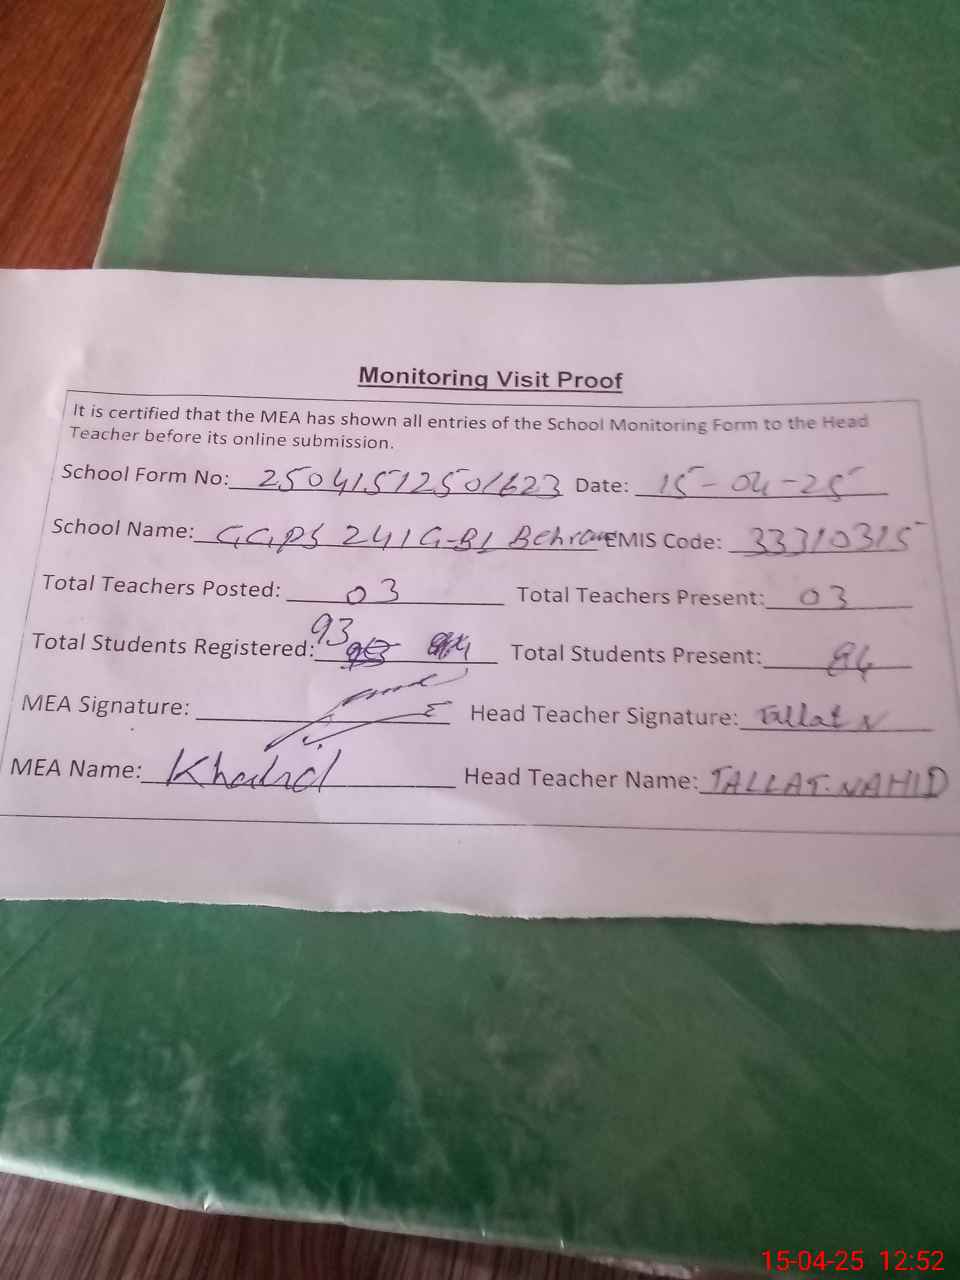 Monitoring Visit Proof
It is certified that the MEA has shown all entries of the School Monitoring Form to the Head
Teacher before its online submission.
School Form No: 25041512501623 Date: 15-04-25
School Name: GGPS 241 G-B1 Behram EMIS Code: 33310315
Total Teachers Posted: 03 Total Teachers Present: 03
Total Students Registered: 93 Total Students Present: 84
MEA Signature: Head Teacher Signature: Tallat N
MEA Name: Khalid Head Teacher Name: TALLAT. NAHID
15-04-25 12:52